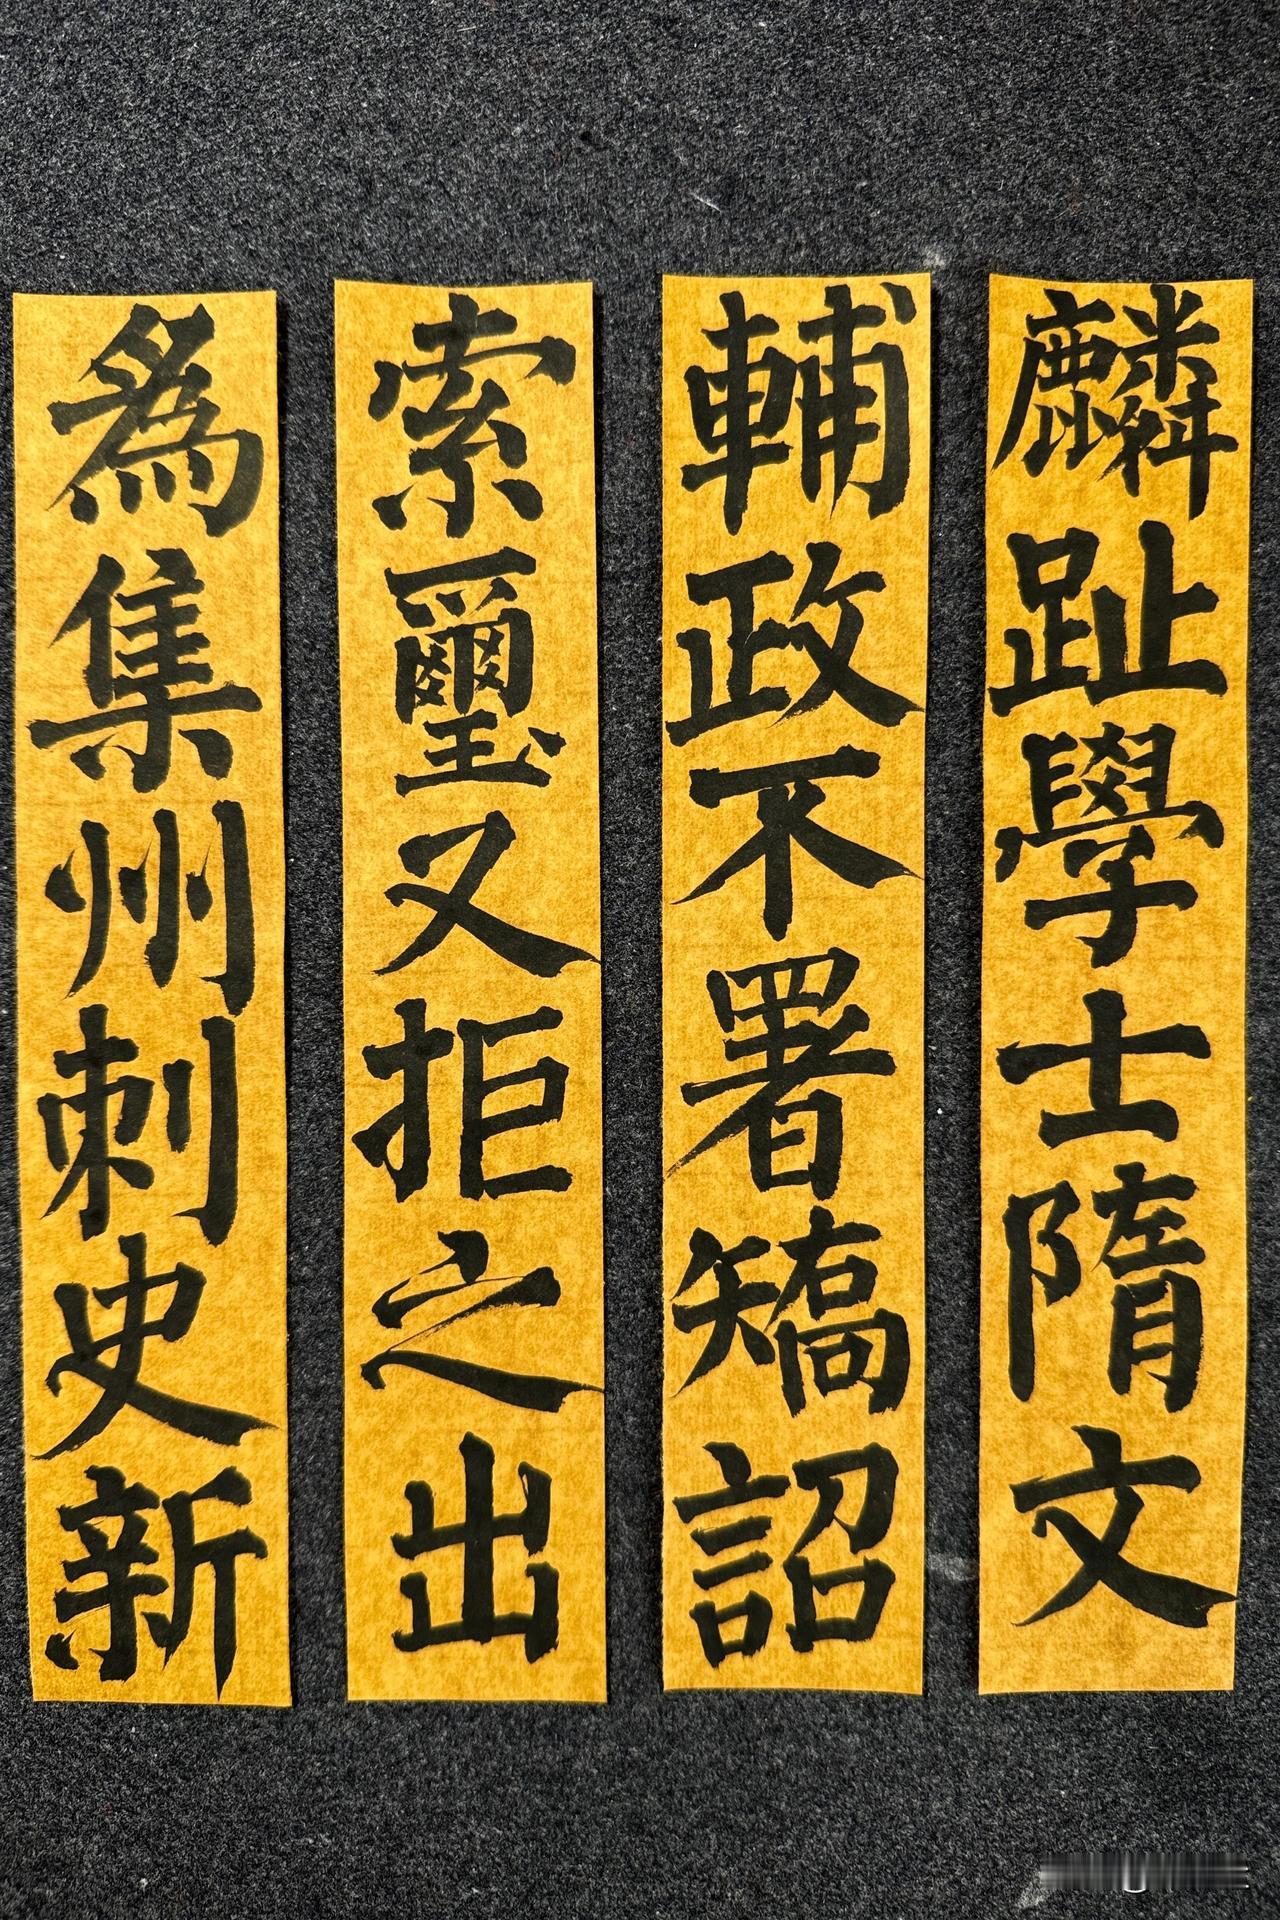 麟趾學士隋文
輔政不署矯詔
索璽又拒之出
為集州刺史新